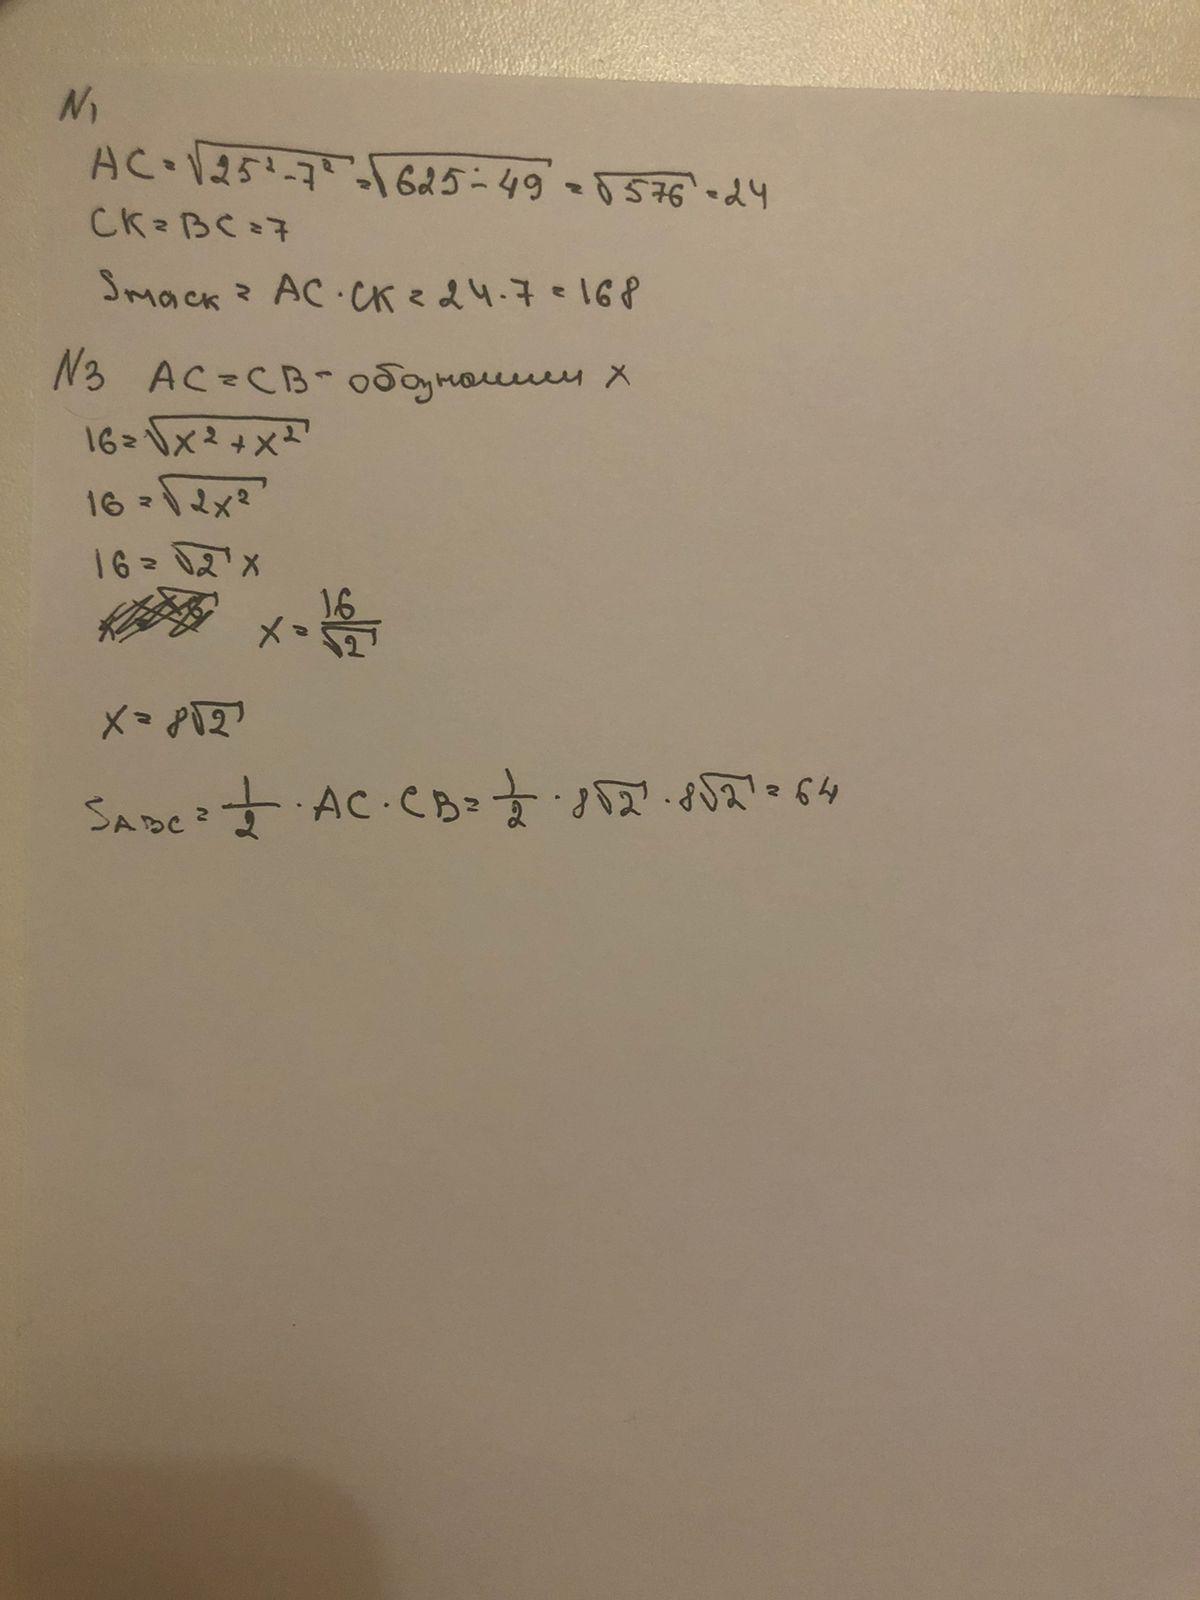 N1
AC = √25² - 7² = √625 - 49 = √576 = 24
CK = BC = 7
Sмаск = AC · CK = 24 · 7 = 168
N3 AC = CB - обозначим x
16 = √x² + x²
16 = √2x²
16 = √2 x
x = 16/√2
x = 8√2
SABC = 1/2 · AC · CB = 1/2 · 8√2 · 8√2 = 64